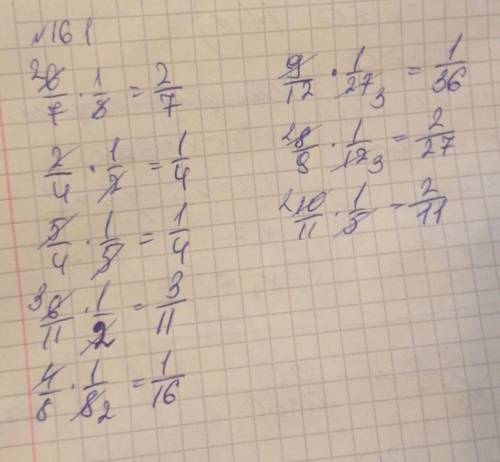 №161
2 6/7 · 1/3 = 2/7
2/4 · 1/2 = 1/4
5/4 · 1/5 = 1/4
3 6/11 · 1/2 = 3/11
4/8 · 1/8 2 = 1/16
9/12 · 1/27 3 = 1/36
2 8/9 · 1/12 3 = 2/27
2 10/11 · 1/5 = 2/11